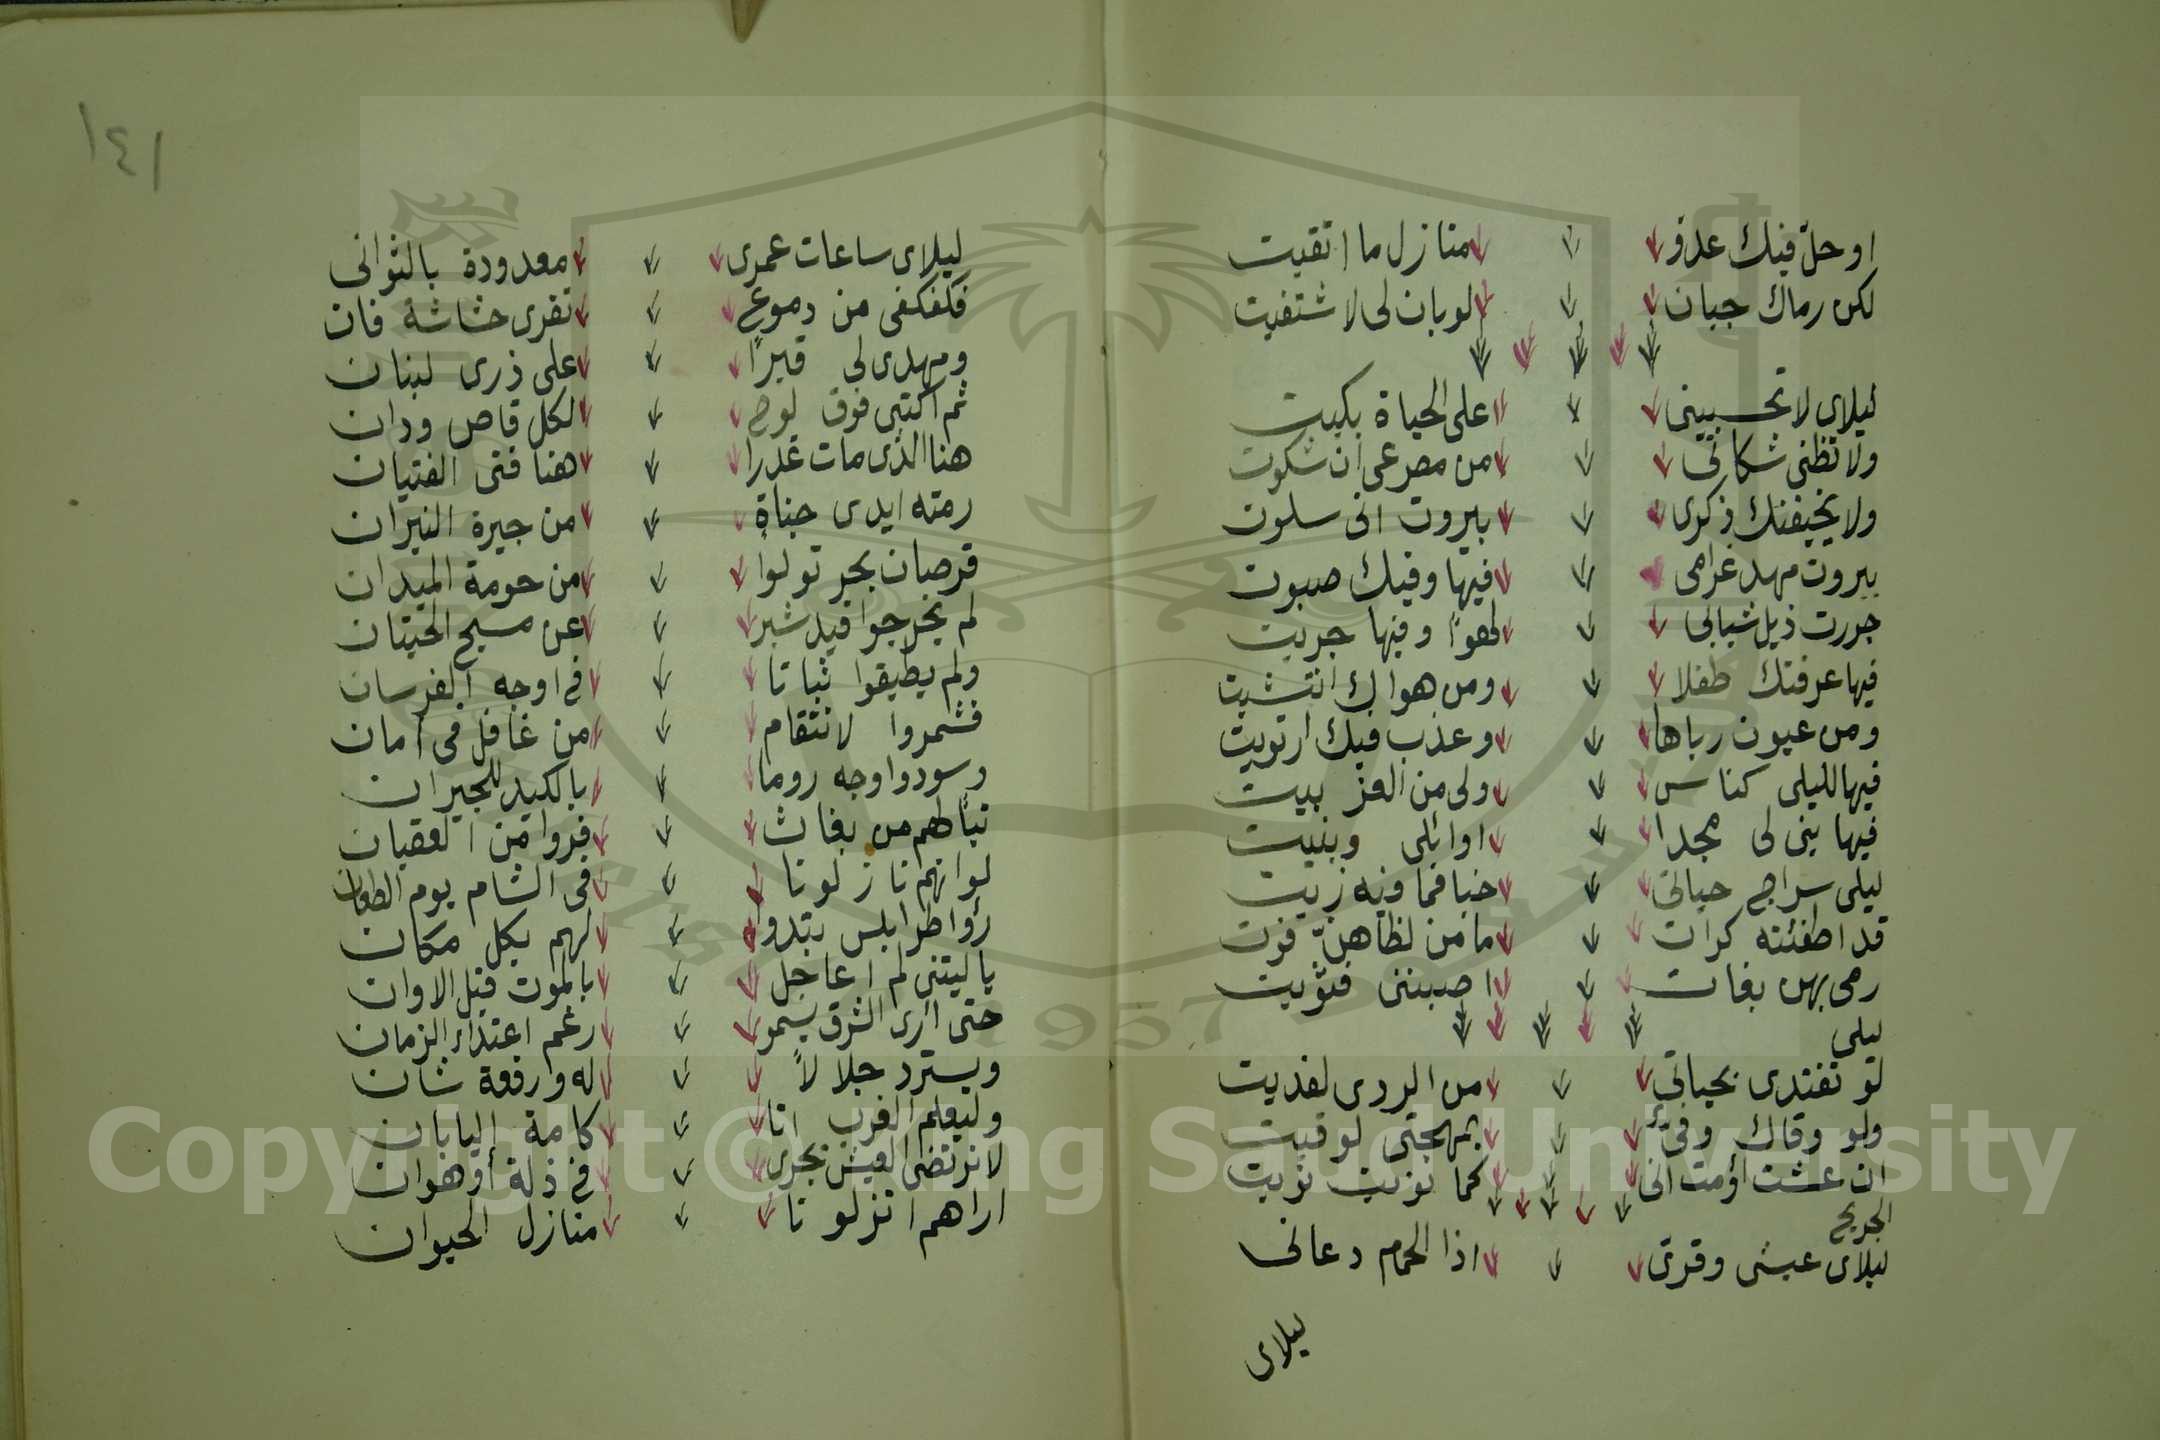 او حلّ فيك عدو منازل ما اتقيت
لكن رماك جبان لو بان لى لاشتفيت
ليلاى لا تحسبينى على الحياة بكيت
ولا تظنى شكاتى من مصرعى ان شكوت
ولا يخيفنك ذكرى بيروت انى سلوت
بيروت مهد غرامى فيها وفيك صبوت
جررت ذيل شبابى لهوًا وفيها جريت
فيها عرفتك طفلا ومن هواك انتشيت
ومن عيون رباها وعذب فيك ارتويت
فيها لليلى كناس ولى من العز بيت
فيها بنى لى مجدا اوائلى وبنيت
ليلى سراج حياتى خبا فما فيه زيت
قد اطفئته كرات ما من لظاهنّ فوت
رمى بهن بغات اصبننى فثويت
ليلى
لو تفتدى بحياتى من الردى لفديت
ولو وقاك وفىّ بمهجتى لوقيت
ان عشت أومت انى كما نويت نويت
الجريح
ليلاى عيشى وقرى اذا الحمام دعانى
ليلاى
١٤١
ليلاى ساعات عمرى معدودة بالثوانى
فكفكفى من دموع تفرى حشاشة فان
ومهدى لى قبرًا على ذرى لبنان
ثم اكتبى فوق لوح لكل قاص ودان
هنا الذى مات غدرا هنا فتى الفتيان
رمته ايدى جناة من جيرة النيران
قرصان بحر تولوا من حومة الميدان
لم يخرجوا قيد شبر عن مسبح الحيتان
ولم يطيقوا ثباتا فى اوجه الفرسان
فشمروا لانتقام من غافل فى أمان
وسودوا وجه روما بالكيد للجيران
تبًا لهم من بغاث فروا من العقبان
لو انهم نازلونا فى الشام يوم الطعان
رؤا طرابلس تبدوا لهم بكل مكان
ياليتنى لم اعاجل بالموت قبل الاوان
حتى أرى الشرق يسمو رغم اعتداء الزمان
ويسترد جلالاً له ورفعة شان
وليعلم الغرب انا كامة اليابان
لا نرتضى العيش يجرى فى ذلة أوهوان
اراهم انزلونا منازل الحيوان
Copyright © King Saud University
1957